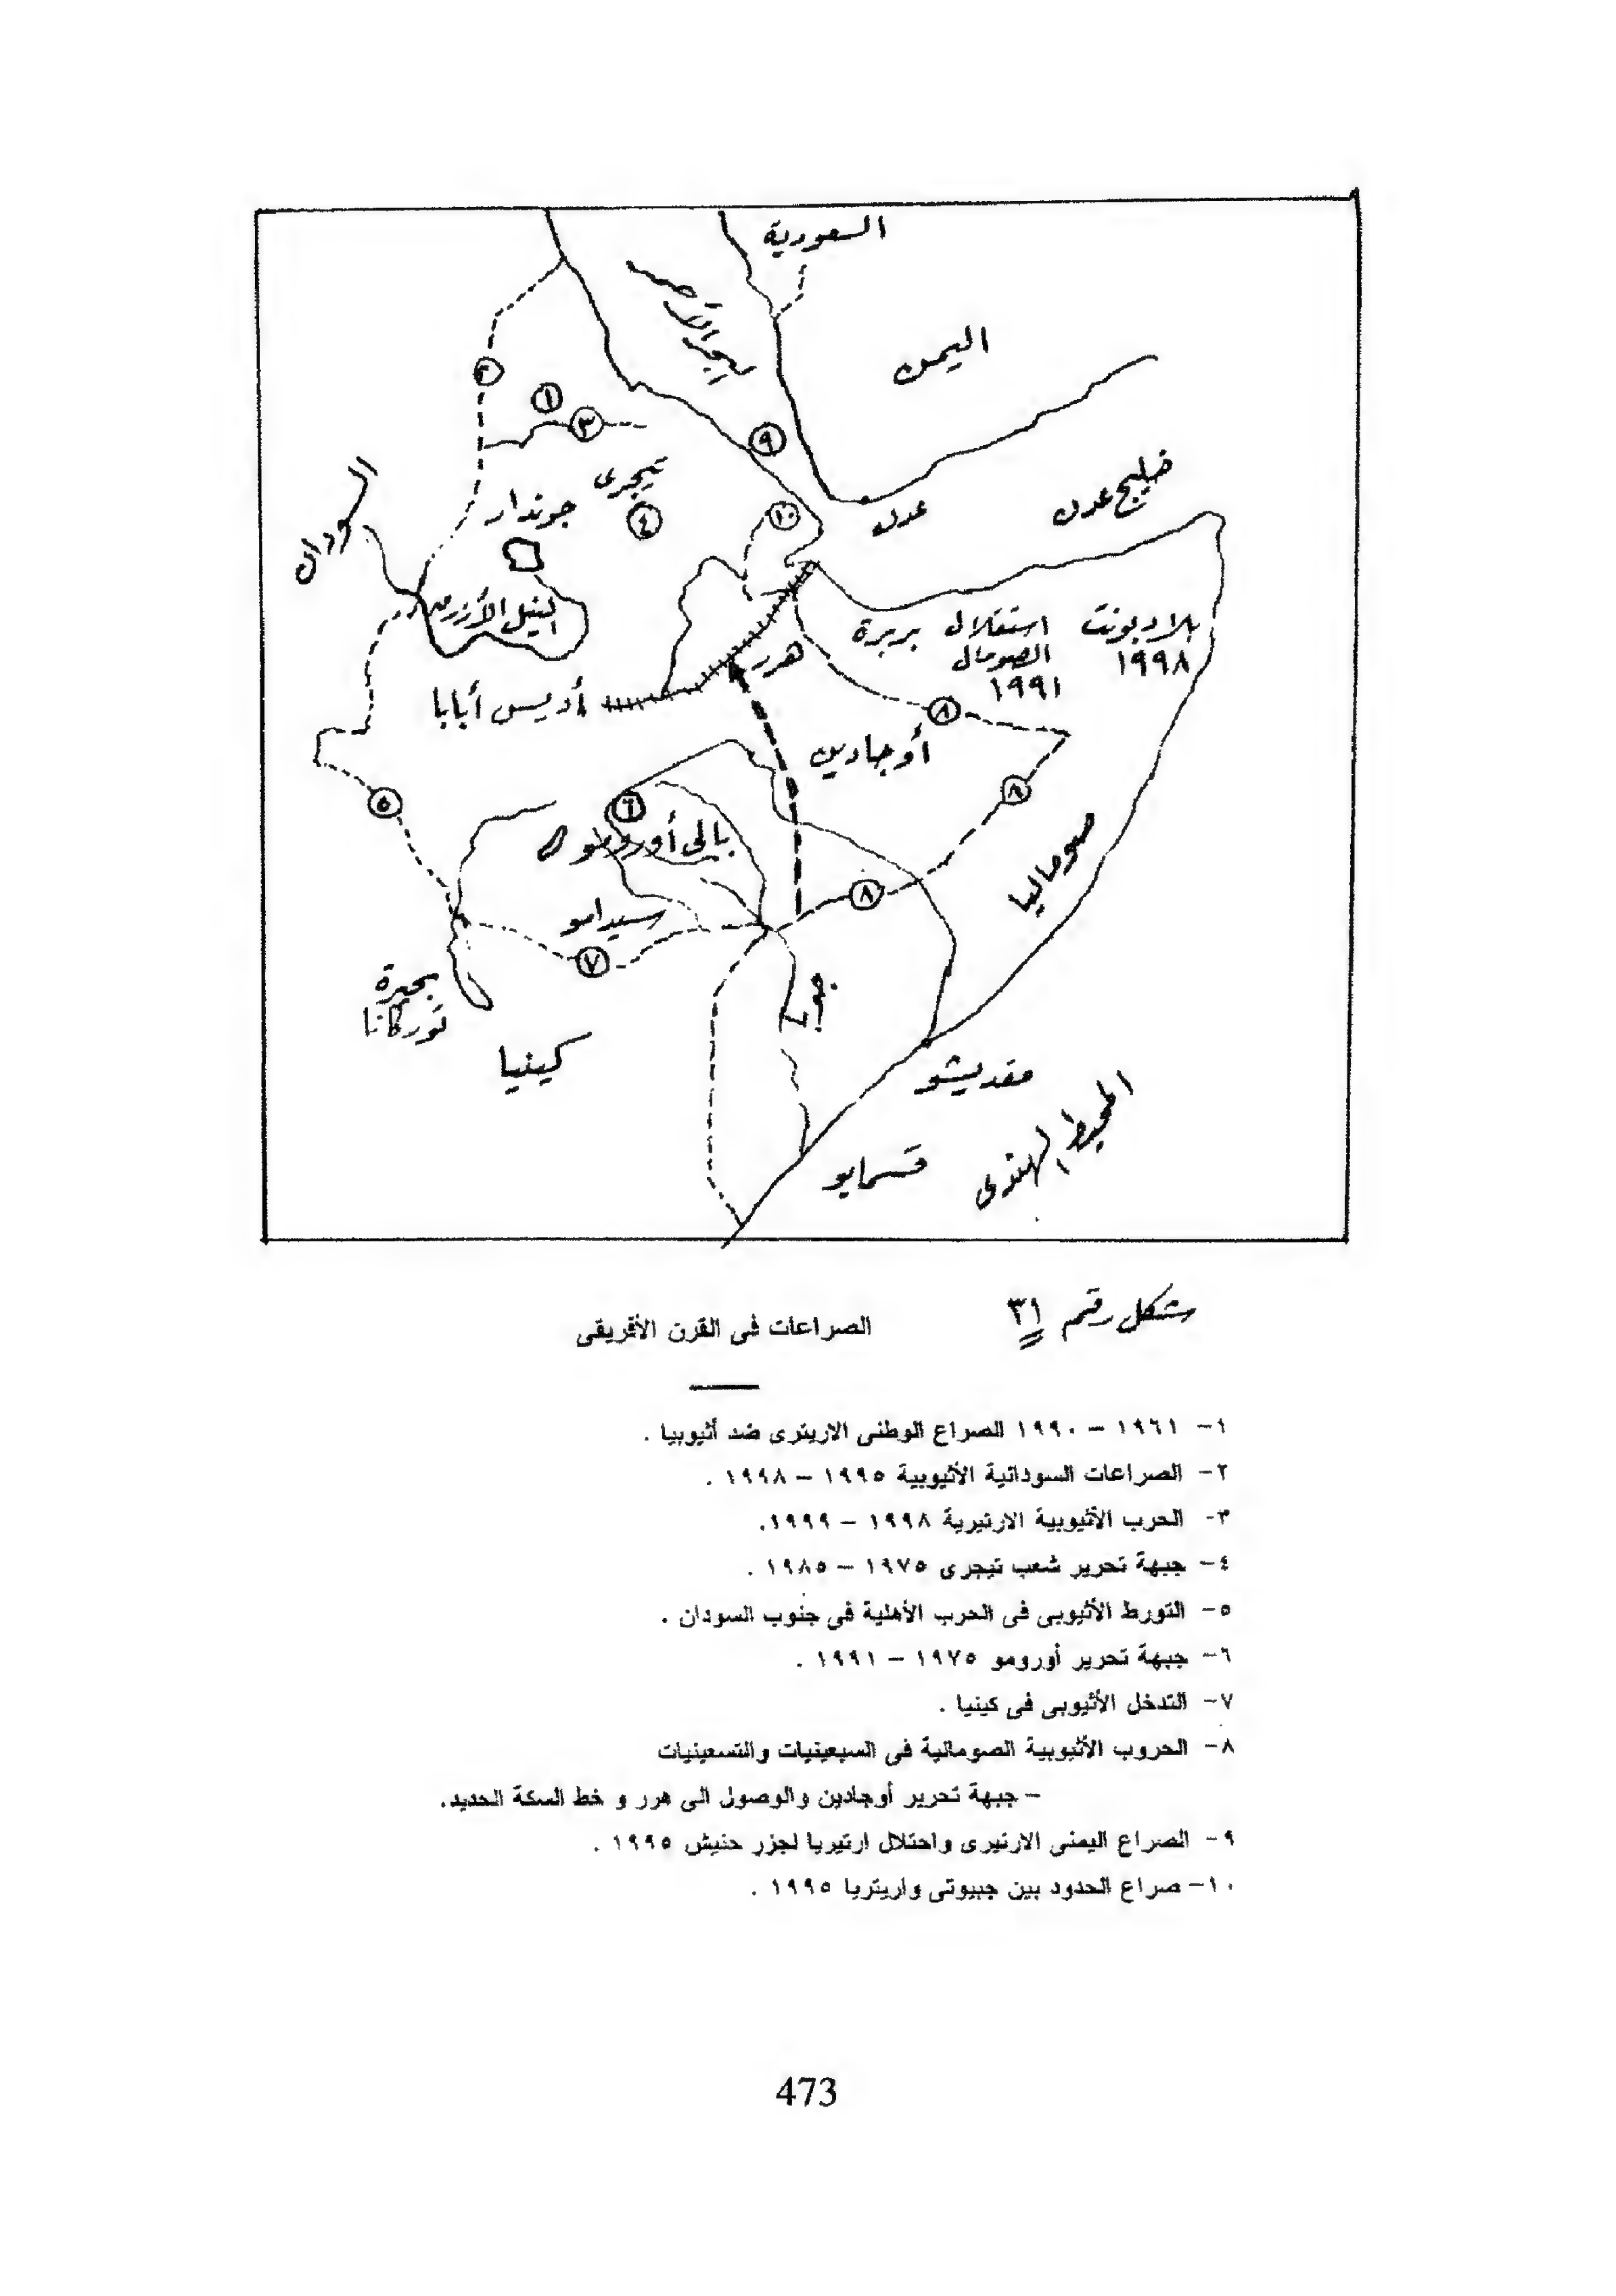 السعودية
البحر الأحمر
اليمن
٢
١
٣
٩
تيجرى
خليج عدن
السودان
جوندار
٤
١٠
عدن
النيل الأزرق
بلاد بونت
١٩٩٨
استقلال
الصومال
١٩٩١
بربرة
هرر
أديس أبابا
٨
أوجادين
٨
٥
٦
بالى أورومو
صوماليا
٨
سيدامو
٧
بحيرة
توركانا
جوبا
كينيا
مقديشو
المحيط الهندى
قسمايو
شكل رقم ٣١
الصراعات فى القرن الأفريقى
١- ١٩٦١ – ١٩٩٠ الصراع الوطنى الاريترى ضد أثيوبيا .
٢- الصراعات السودانية الأثيوبية ١٩٩٥ – ١٩٩٨ .
٣- الحرب الأثيوبية الارتيرية ١٩٩٨ – ١٩٩٩.
٤- جبهة تحرير شعب تيجرى ١٩٧٥ – ١٩٨٥ .
٥- التورط الأثيوبى فى الحرب الأهلية فى جنوب السودان .
٦- جبهة تحرير أورومو ١٩٧٥ – ١٩٩١ .
٧- التدخل الأثيوبى فى كينيا .
٨- الحروب الأثيوبية الصومالية فى السبعينيات والتسعينيات
– جبهة تحرير أوجادين والوصول الى هرر و خط السكة الحديد.
٩- الصراع اليمنى الارتيرى واحتلال ارتيريا لجزر حنيش ١٩٩٥ .
١٠- صراع الحدود بين جبيوتى واريتريا ١٩٩٥ .
473